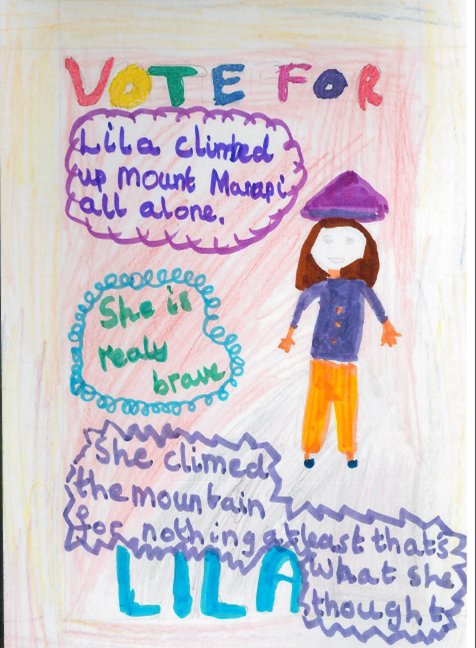 VOTE FOR
Lila climbed
up mount Marapi
all alone.
She is
realy
brave
She climed
the mountain
for nothing at least that's
What she
thought.
LILA